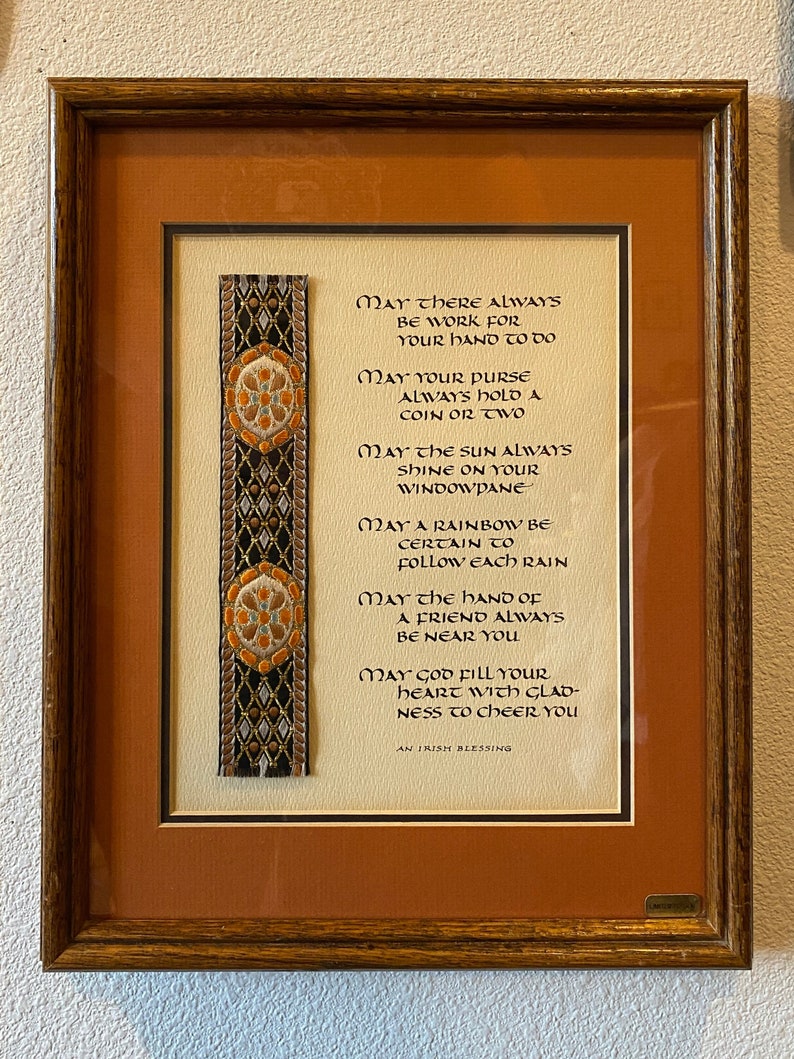 MAY THERE ALWAYS
BE WORK FOR
YOUR HAND TO DO
MAY YOUR PURSE
ALWAYS HOLD A
COIN OR TWO
MAY THE SUN ALWAYS
SHINE ON YOUR
WINDOWPANE
MAY A RAINBOW BE
CERTAIN TO
FOLLOW EACH RAIN
MAY THE HAND OF
A FRIEND ALWAYS
BE NEAR YOU
MAY GOD FILL YOUR
HEART WITH GLAD-
NESS TO CHEER YOU
AN IRISH BLESSING